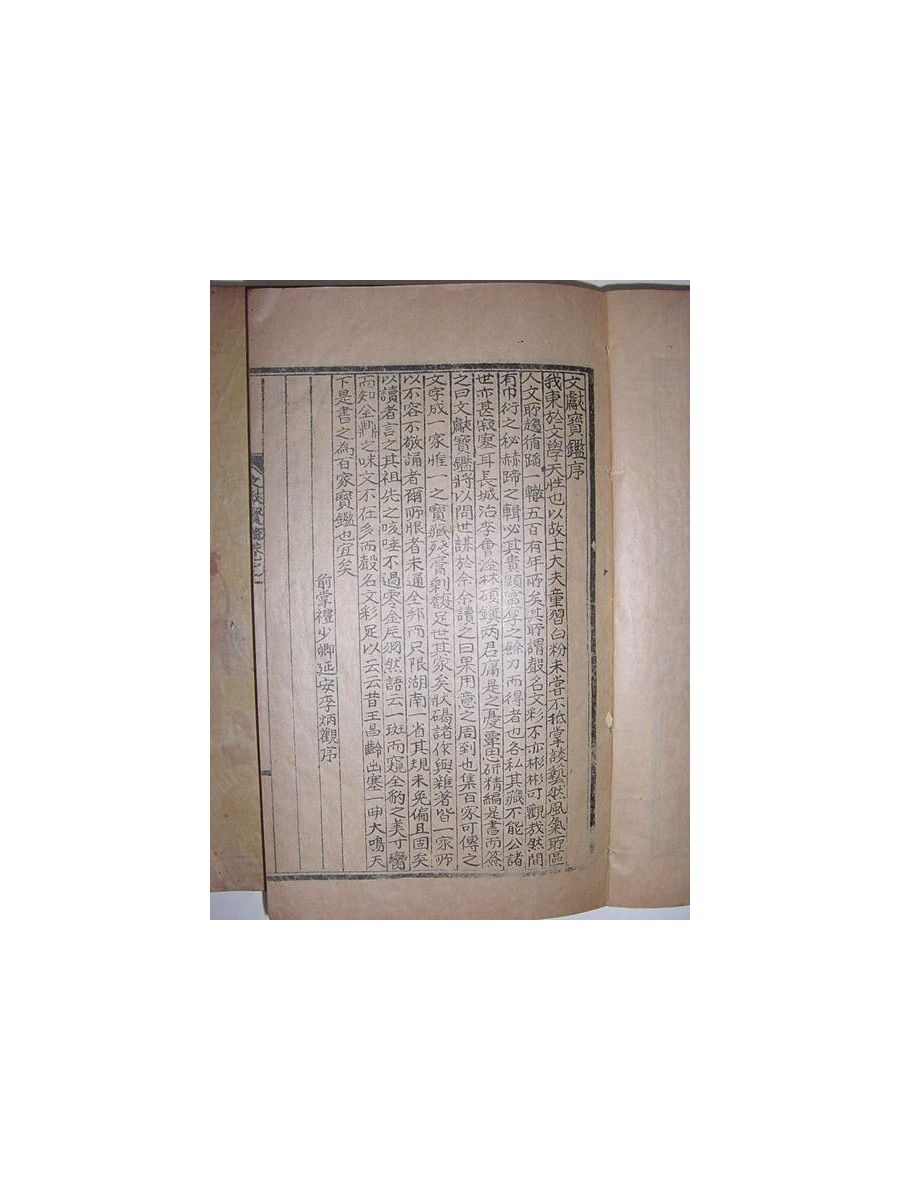 文獻寶鑑序
我東於文學天性也以故士大夫童習白粉未嘗不抵掌談藝然風氣所區
人文所趨循蹈一轍五百有年所矣其所謂聲名文彩不亦彬彬可觀哉然間
有巾衍之秘赫蹄之輯必其貴顯富厚之餘力而得者也各私其藏不能公諸
世亦甚寂寞耳長城治李會淦林碩鎭兩君痛是之憂覃思硏精編是書而簽
之曰文獻寶鑑將以問世謀於余余讀之曰果用意之周到也集百家可傳之
文字成一家惟一之寶藏殘膏剩馥足世其家矣狀碣諸作與雜著皆一家所
以不容不敬誦者爾所恨者未通全邦而只限湖南一省其規未免偏且固矣
以讀者言之其祖先之咳唾不過零金片羽然語云一斑而窺全豹之美寸臠
而知全鼎之味文不在多而聲名文彩足以云云昔王昌齡出塞一曲大鳴天
下是書之為百家寶鑑也宜矣
前掌禮少卿延安李炳觀序
文獻寶鑑卷之一